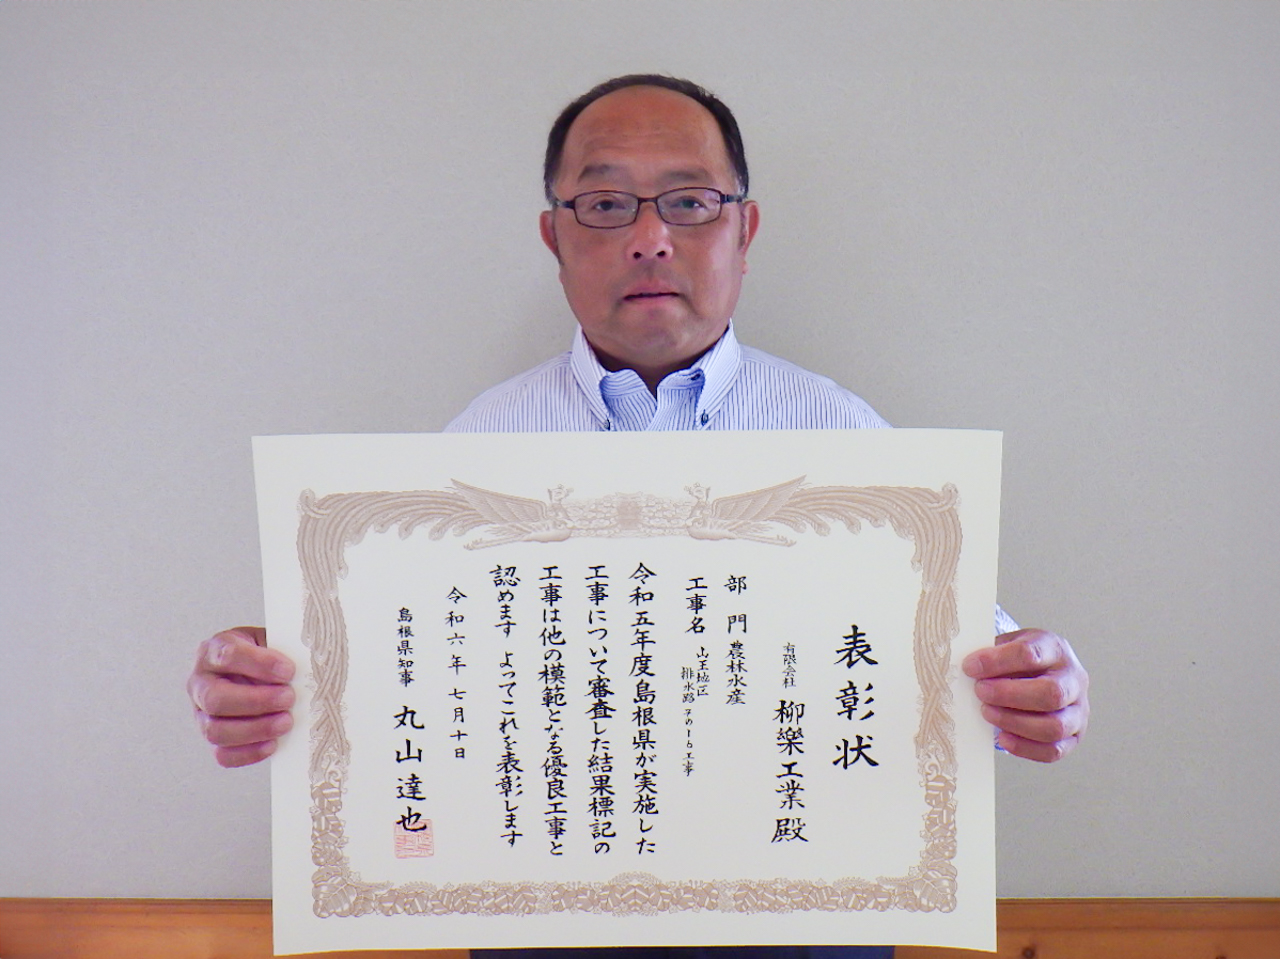 表彰状
有限会社 柳樂工業殿
部門 農林水産
工事名 山王地区
排水路その16工事
令和五年度島根県が実施した
工事について審査した結果標記の
工事は他の模範となる優良工事と
認めます よってこれを表彰します
令和六年七月十日
島根県知事 丸山達也